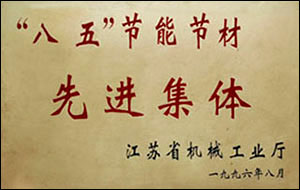 “八五”节能节材
先进集体
江苏省机械工业厅
一九九六年八月